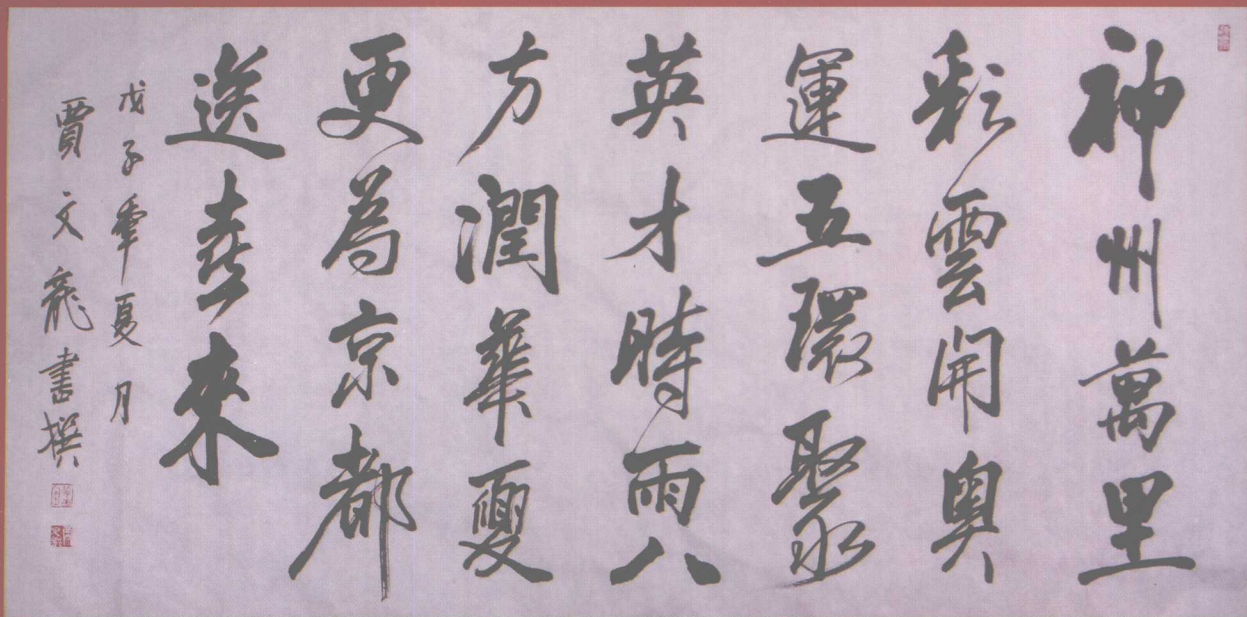 神州萬里
彩雲開奧
運五環聚
英才時雨八
方潤華夏
更為京都
送喜來
戊子年夏月
賈文龍書撰